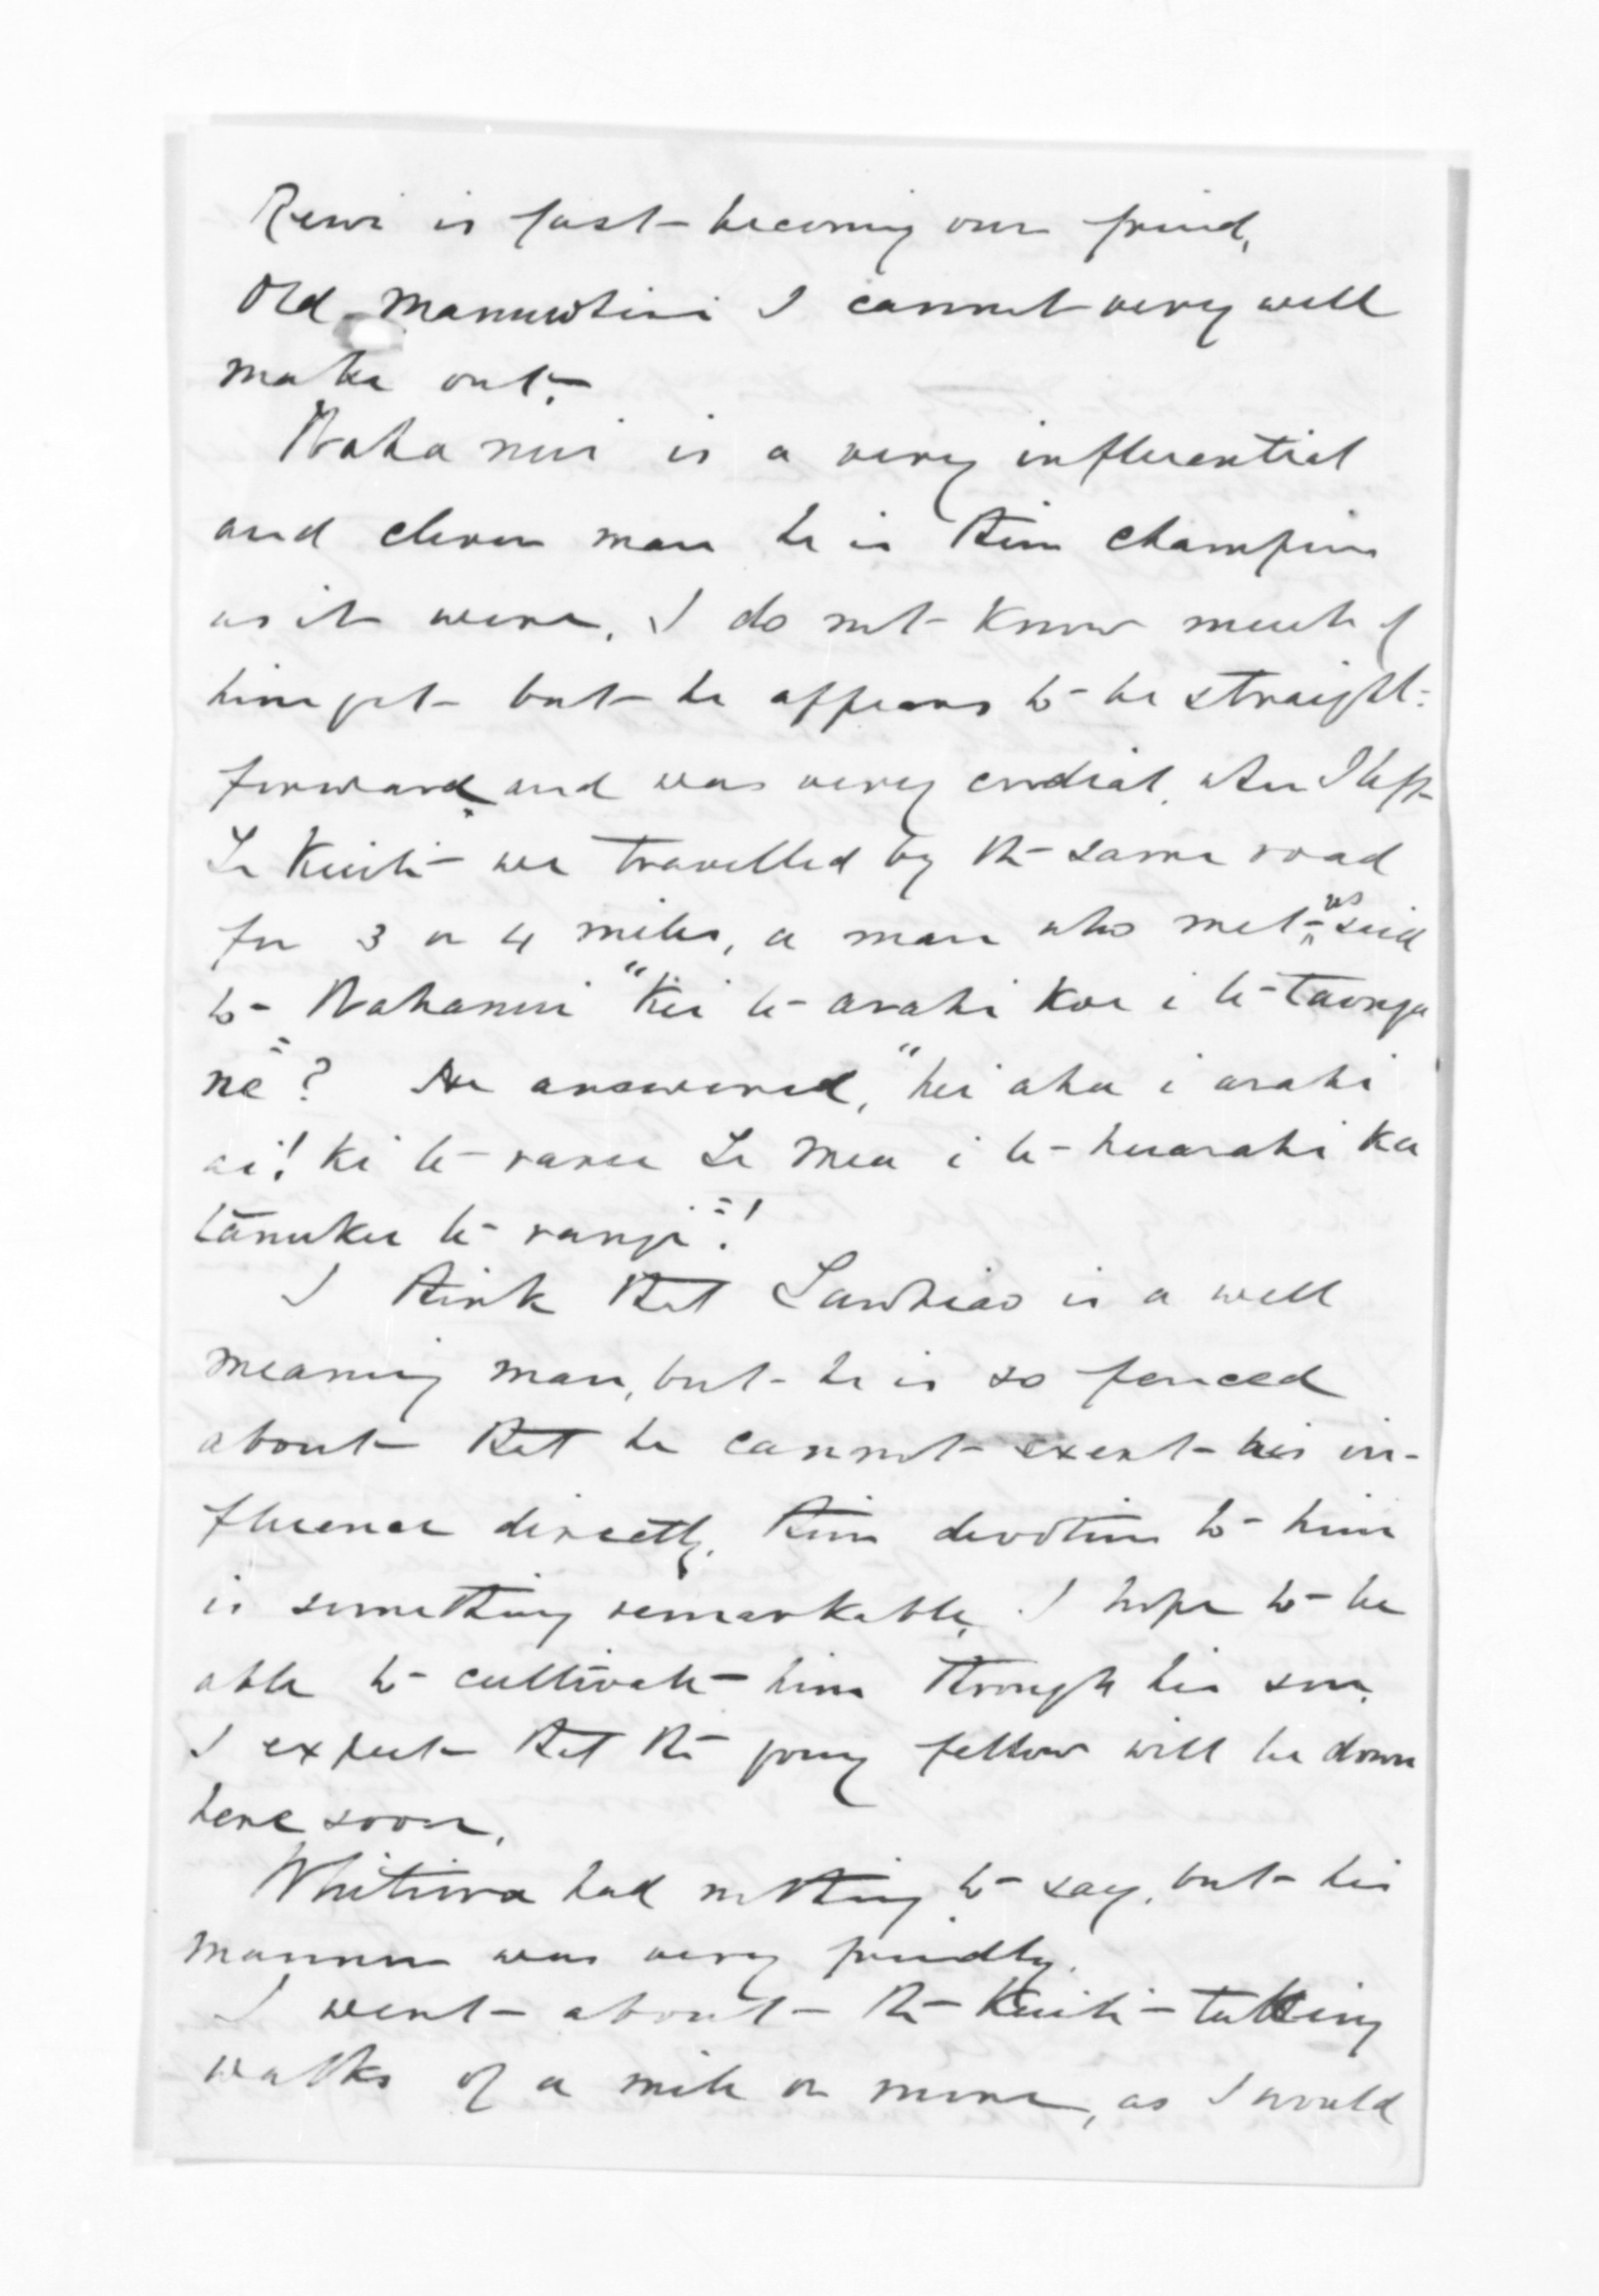 Rewi is fast becoming our friend,
Old Manuwhiri I cannot very well
make out.
Wahanui is a very influential
and clever man he is their champion
as it were. I do not know much of
him yet but he appears to be straight-
forward and was very cordial. When I left
Te Kuiti we travelled by the same road
for 3 or 4 miles, a man who met us said
to Wahanui "Kei te arahi koe i te taonga
nē"? He answered, "hei aha i arahi
ai! ki te raru Te Mea i te huarahi ka
tānuku te rangi"!
I think that Tawhiao is a well
meaning man, but he is so fenced
about that he cannot exert his in-
fluence directly. Their devotion to him
is something remarkable. I hope to be
able to cultivate him through his son.
I expect that the young fellow will be down
here soon.
Whitiora had nothing to say, but his
manner was very friendly.
I went about the Kuiti taking
walks of a mile or more, as I would